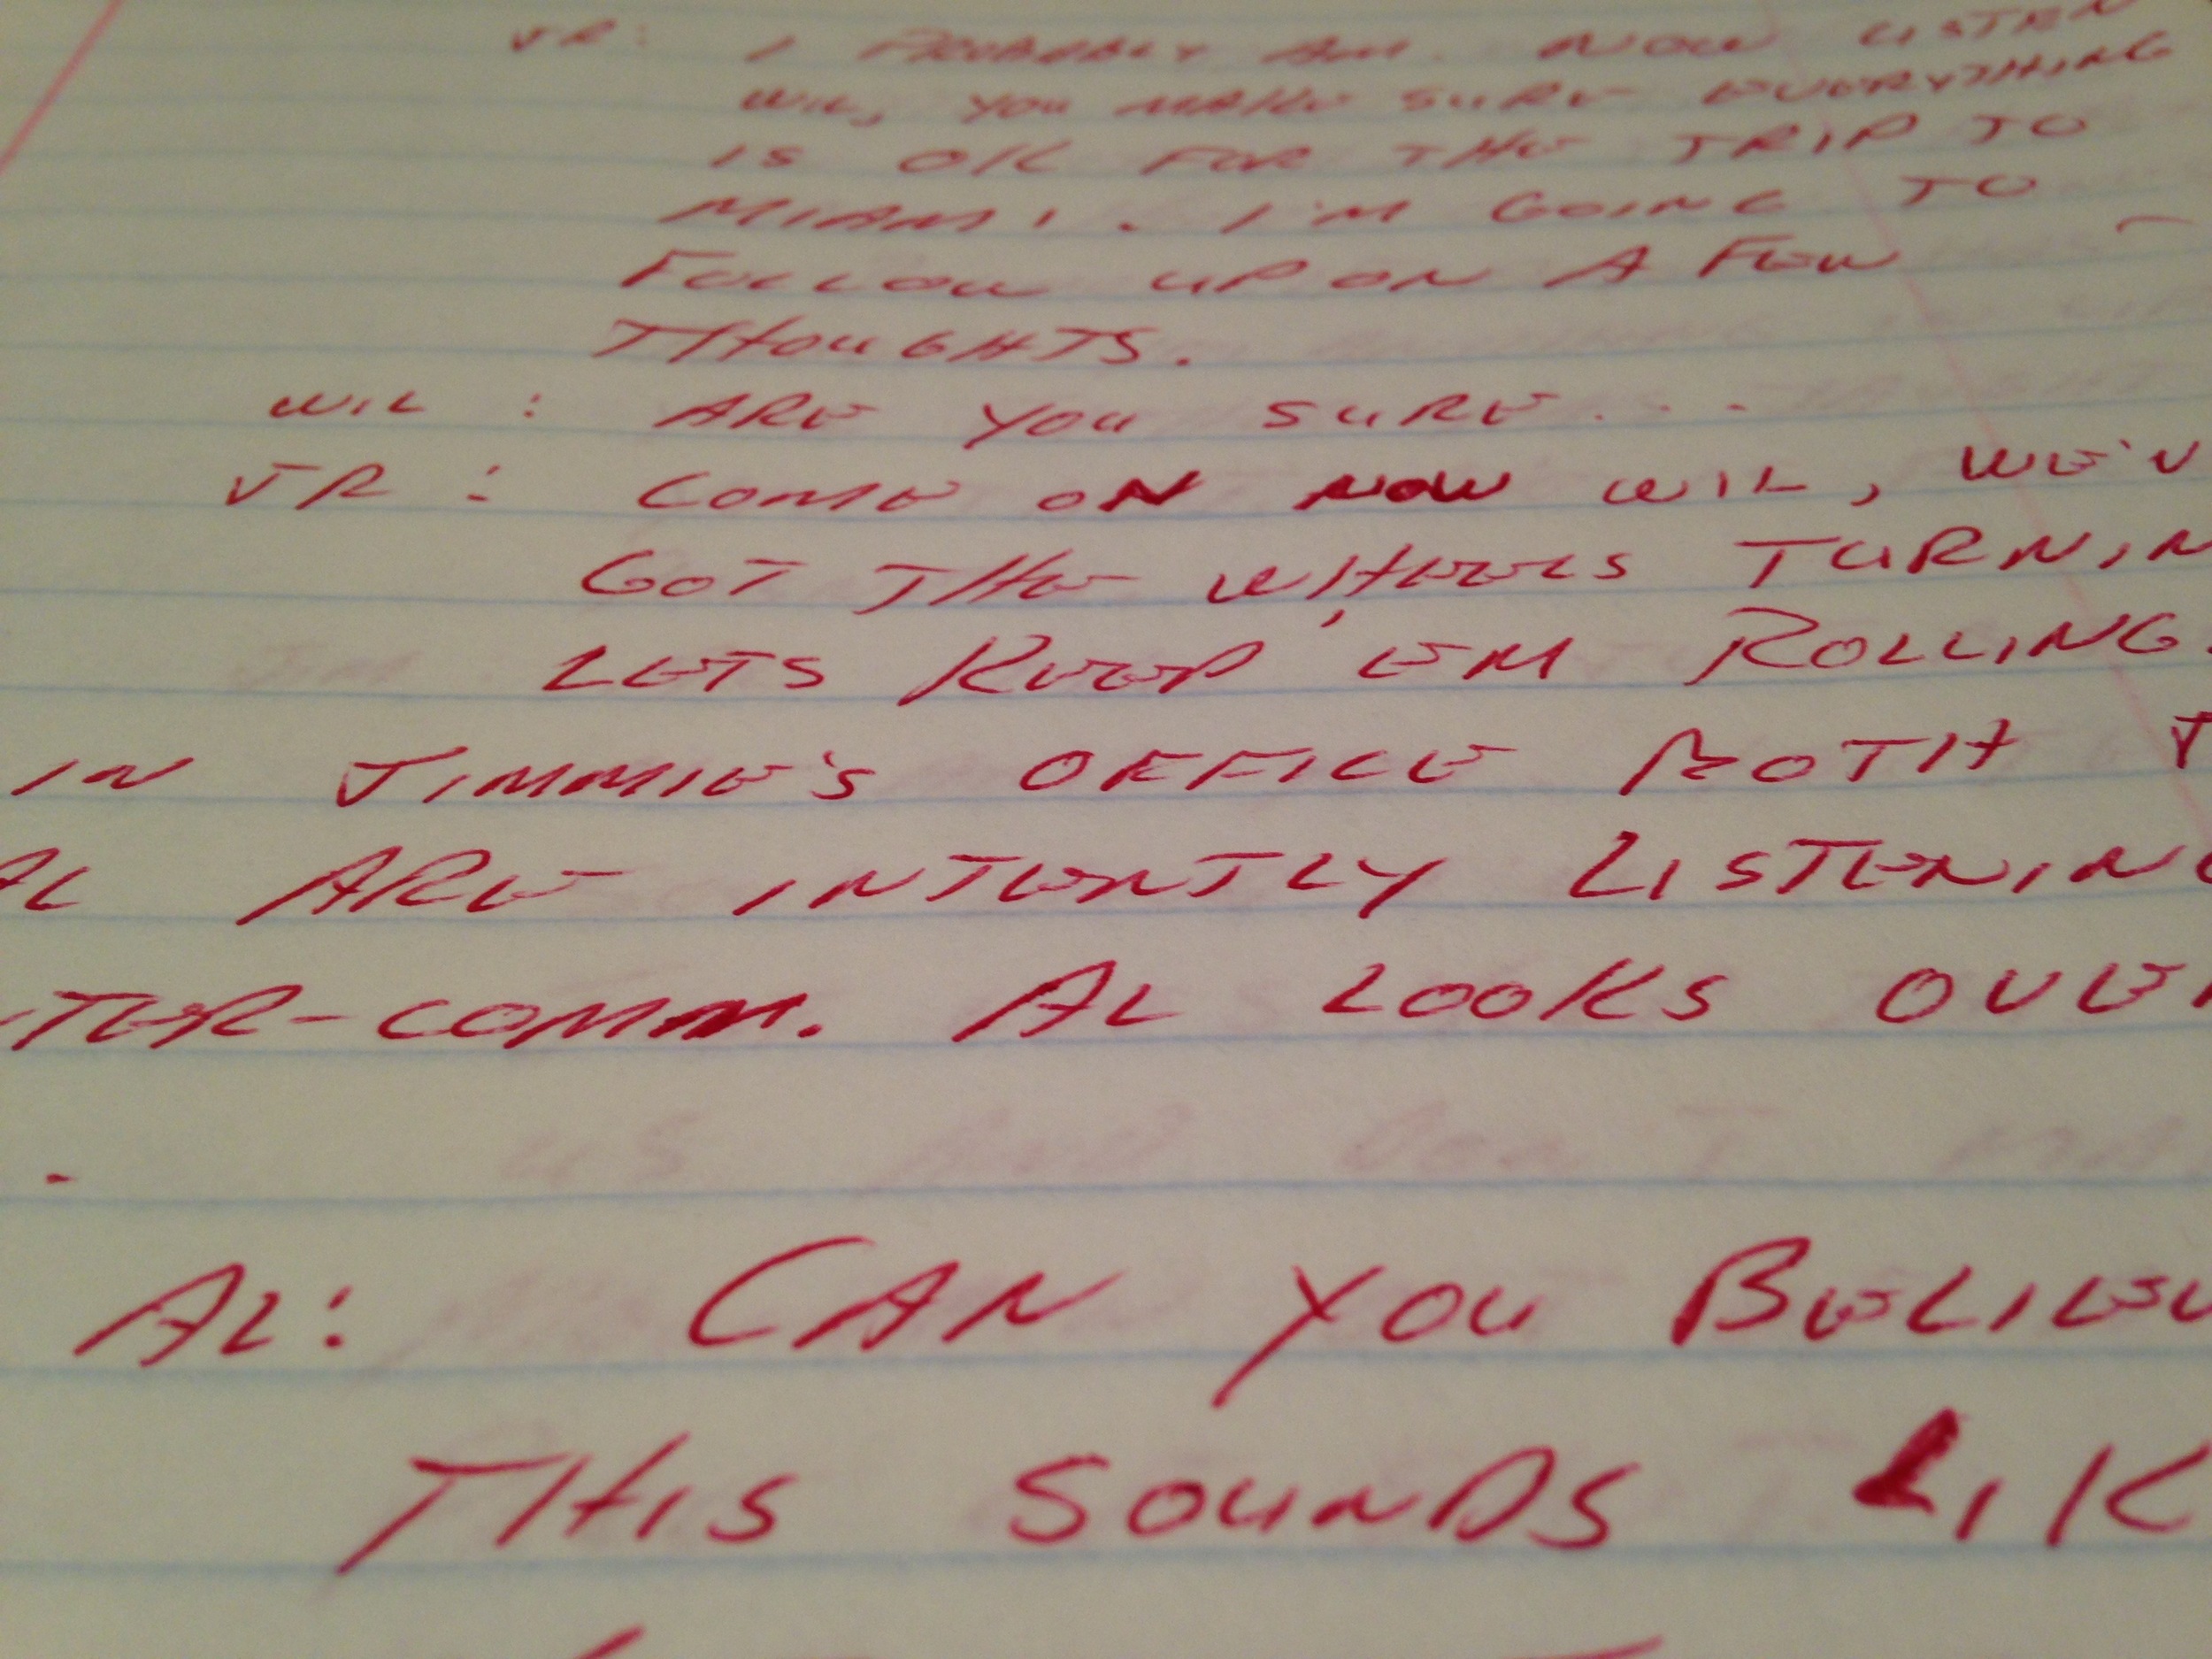 JR: I PROBABLY AM. NOW LISTEN
WIL, YOU MAKE SURE EVERYTHING
IS OK FOR THE TRIP TO
MIAMI. I'M GOING TO
FOLLOW UP ON A FEW
THOUGHTS.
WIL : ARE YOU SURE...
JR : COME ON NOW WIL, WE'V
GOT THE WHEELS TURNIN
LETS KEEP 'EM ROLLING.
IN JIMMIE'S OFFICE BOTH
AL ARE INTENTLY LISTENING
TER-COMM. AL LOOKS OVER
.
AL: CAN YOU BELIEV
THIS SOUNDS LIK